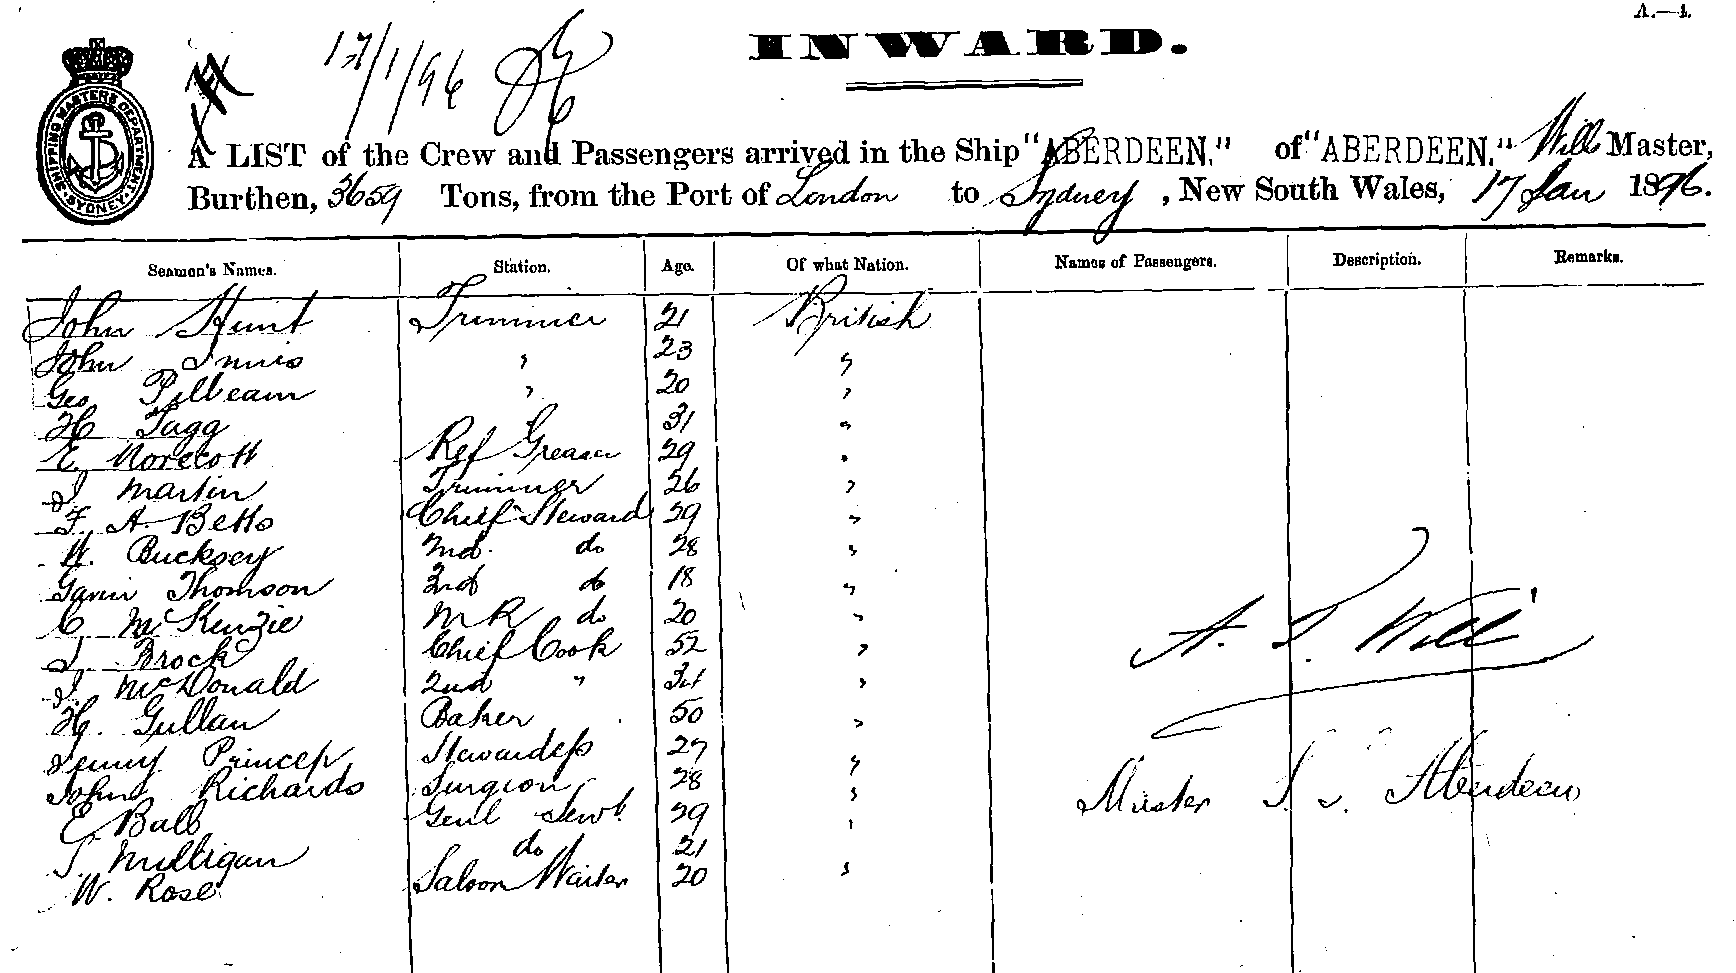 A.—4.
17/1/96
INWARD.
SHIPPING MASTERS DEPARTMENT SYDNEY
A LIST of the Crew and Passengers arrived in the Ship "ABERDEEN," of "ABERDEEN," Will Master,
Burthen, 3659 Tons, from the Port of London to Sydney, New South Wales, 17 Jan 1896.
Seamen's Names. Station. Age. Of what Nation. Names of Passengers. Description. Remarks.
John Hunt Trimmer 21 British
John Innis " 23 "
Geo Pilbeam " 20 "
H Tagg " 31 "
E. Norecott Ref Greaser 29 "
J Martin Trimmer 26 "
F. A. Betts Chief Steward 29 "
W. Bucksey 2nd. do 28 "
Gavin Thomson 3rd do 18 "
C McKenzie M R do 20 "
J. Brock Chief Cook 52 "
J. McDonald 2nd " 34 "
H. Gullan Baker 50 "
Jenny Princep Stewardess 27 "
John Richards Surgeon 28 "
E. Ball Genl Servt. 29 "
J. Mulligan do 21
W. Rose Saloon Waiter 20 "
A. S. Will
Master S. S. Aberdeen